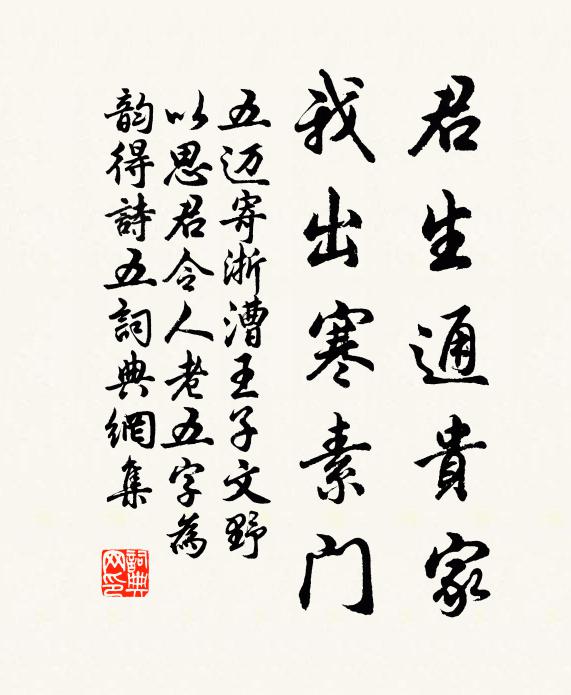 君生通貴家
我出寒素门
五迈寄浙漕王子文野
以思君令人老五字為
韵得詩五詞典網集
詞典網印